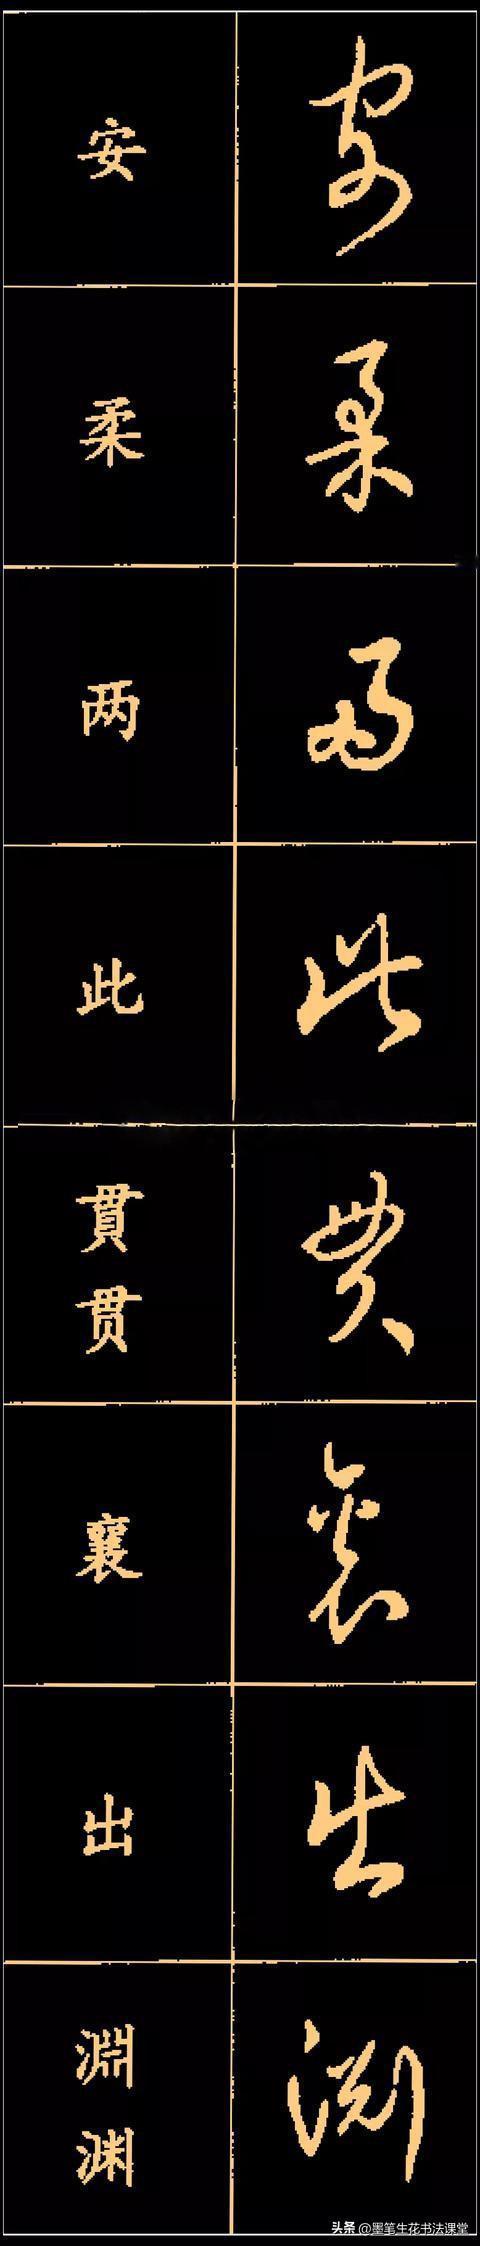 安 安
柔 柔
两 两
此 此
貫 贯 贯
襄 襄
出 出
淵 渊 渊
头条 @墨笔生花书法课堂